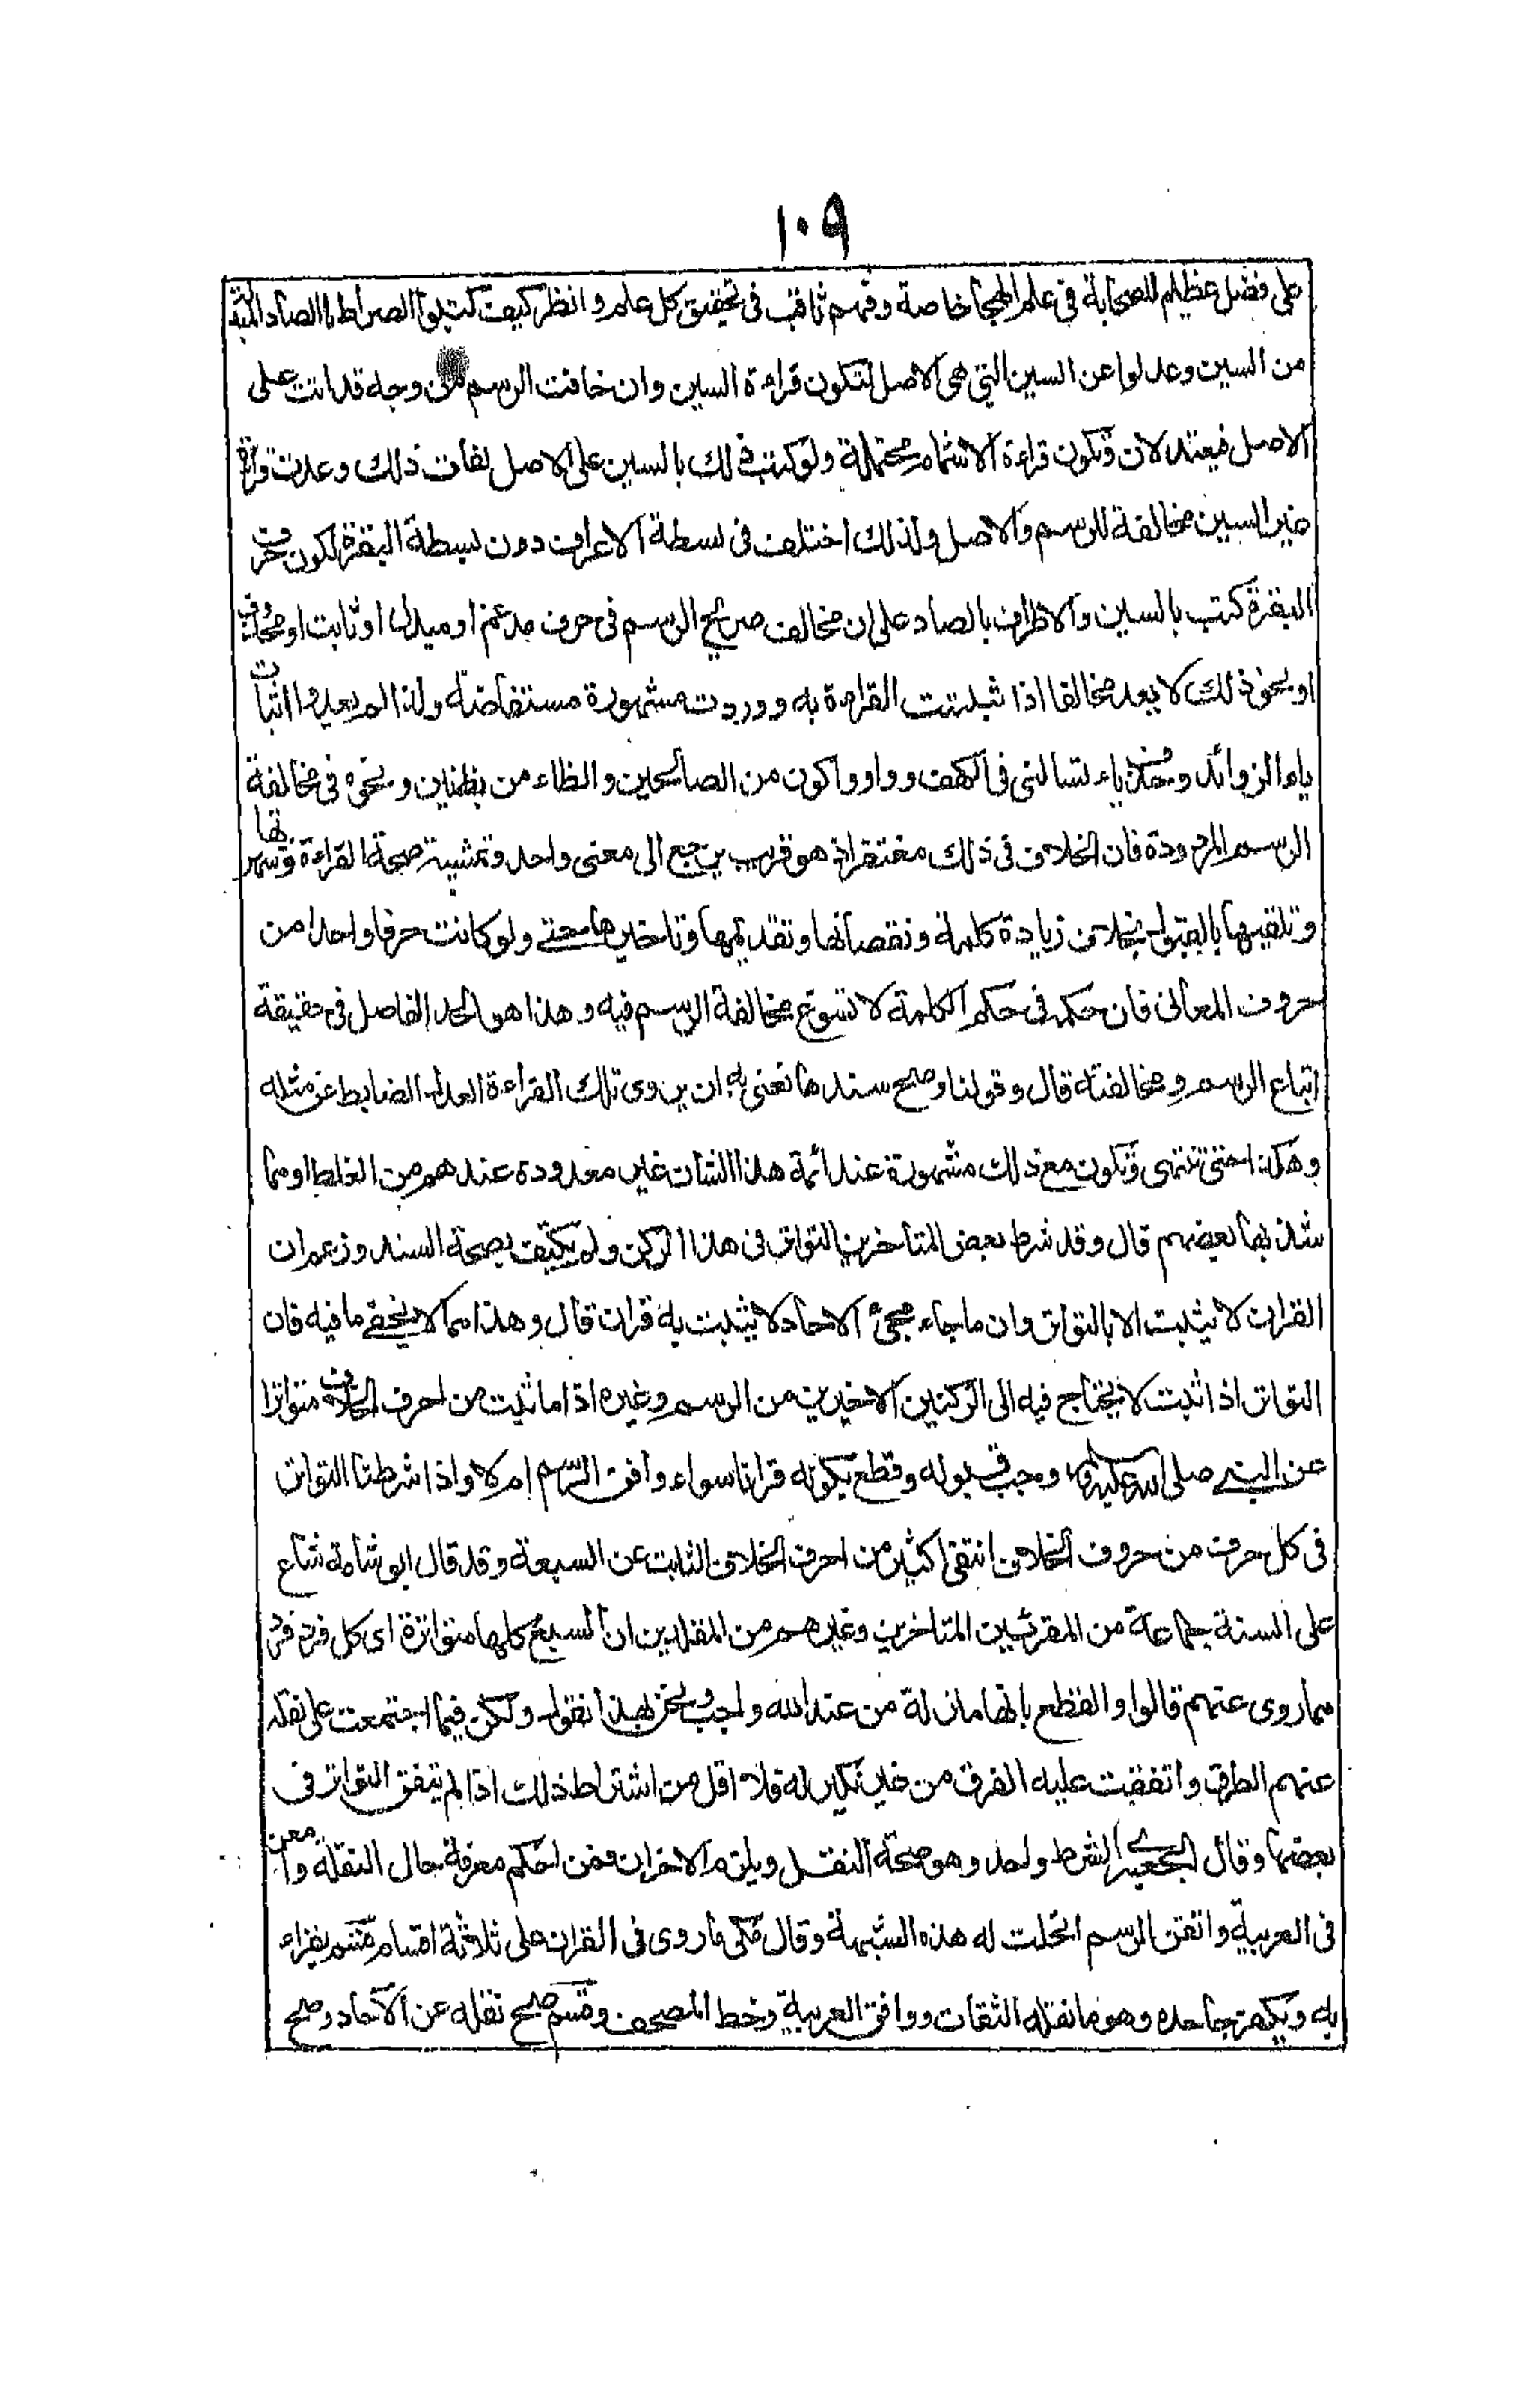 ١٠٩
على فضل عظيم للصحابة في علم الهجا خاصة وفهم ثاقب في تحقيق كل علم وانظر كيف كتبوا الصراط بالصاد المبدلة
من السين وعدلوا عن السين التي هي الاصل لتكون قراءة السين وان خافت الرسم من وجه قد اتت على
الاصل فيعتد لان وتكون قراءة الاشمام محتملة ولو كتب ذلك بالسين على الاصل لفات ذلك وعدت قراءة
غير السين مخالفة للرسم والاصل ولذلك اختلف في بسطة الاعراف دون بسطة البقرة لكون حرف
البقرة كتب بالسين والاعراف بالصاد على ان مخالف صريح الرسم في حرف مدغم او مبدل او ثابت او محذوف
او نحو ذلك لا يعد مخالفا اذا ثبتت القراءة به ووردت مشهورة مستفاضة ولذا لم يعدوا اثبات
ياء الزوائد وحذف ياء تسالني في الكهف وواو واكون من الصالحين والظاء من بظنين ونحوه في مخالفة
الرسم المردودة فان الخلاف في ذلك مغتفر اذ هو قريب يرجع الى معنى واحد وتمشيه صحة القراءة وشهرتها
وتلقيها بالقبول بخلاف زيادة كلمة ونقصانها وتقديمها وتاخيرها حتى ولو كانت حرفا واحدا من
حروف المعاني فان حكمه في حكم الكلمة لا تسوغ مخالفة الرسم فيه وهذا هو الحد الفاصل في حقيقة
اتباع الرسم ومخالفته قال وقولنا وصح سندها نعني به ان يروى تلك القراءة العدل الضابط عن مثله
وهكذا حتى تنتهى وتكون مع ذلك مشهورة عند ائمة هذا الشان غير معدودة عندهم من الغلط او مما
شذ بها بعضهم قال وقد شرط بعض المتاخرين التواتر في هذا الركن ولم يكتف بصحة السند وزعم ان
القران لا يثبت الا بالتواتر وان ما جاء مجئ الاحاد لا يثبت به قران قال وهذا مما لا يخفى ما فيه فان
التواتر اذا ثبت لا يحتاج فيه الى الركنين الاخيرين من الرسم وغيره اذ ما ثبت من احرف الخلاف متواترا
عن النبي صلى الله عليه وسلم وجب قبوله وقطع بكونه قرانا سواء وافق الرسم ام لا واذا شرطنا التواتر
في كل حرف من حروف الخلاف انتقى كثير من احرف الخلاف الثابت عن السبعة وقد قال ابو شامة شاع
على السنة جماعة من المقرئين المتاخرين وغيرهم من المقلدين ان السبع كلها متواترة اى كل فرد فرد
مما روى عنهم قالوا والقطع بانها منزلة من عند الله واجب ونحن بهذا نقول ولكن فيما اجتمعت على نقله
عنهم الطرق واتفقت عليه الفرق من غير نكير له فلا اقل من اشتراط ذلك اذا لم يتفق التواتر في
بعضها وقال الجعبري الشرط واحد وهو صحة النقل ويلزم الاخران ومن احكم معرفة حال النقلة وامعن
في العربية واتقن الرسم انحلت له هذه الشبهة وقال مكى ما روى في القران على ثلاثة اقسام قسم يقراء
به ويكفر جاحده وهو ما نقله الثقات ووافق العربية وخط المصحف وقسم صح نقله عن الآحاد وصح